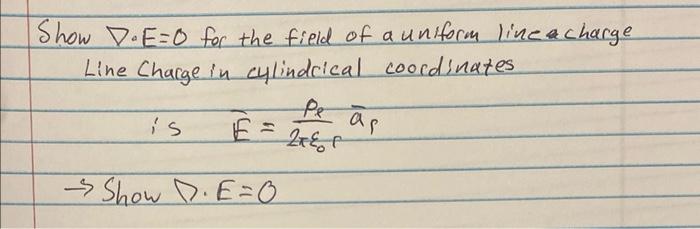 Show ∇·E=0 for the field of a uniform line a charge
Line Charge in cylindrical coordinates
is E̅ = ρℓ / 2πε₀ρ a̅ρ
→ Show ∇·E=0